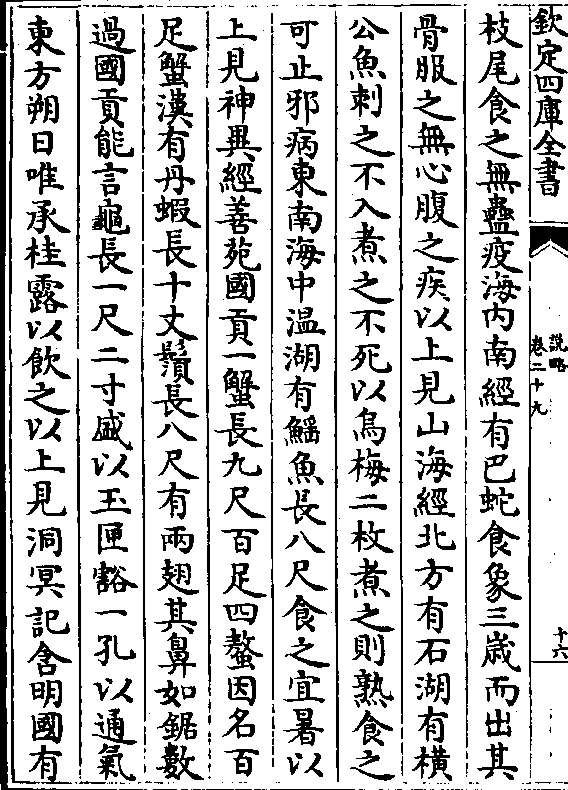 欽定四庫全書
說略
卷二十九
十六
枝尾食之無蠱疫海内南經有巴蛇食象三歳而出其
骨服之無心腹之疾以上見山海經北方有石湖有橫
公魚刺之不入煮之不死以烏梅二枚煮之則熟食之
可止邪病東南海中温湖有鰩魚長八尺食之宜暑以
上見神異經善苑國貢一蟹長九尺百足四螯因名百
足蟹漢有丹蝦長十丈鬚長八尺有兩翅其鼻如鋸數
過國貢能言龜長一尺二寸盛以玉匣豁一孔以通氣
東方朔曰唯承桂露以飲之以上見洞冥記含明國有